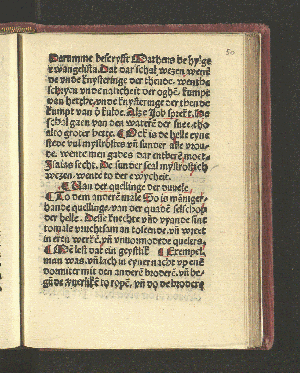 50
Darumme bescryft Matheus de hylge
ewangelista. Dat dar schal wezen wene
de vnde knysteringe der thende. wen
schryen vnde naricheit der oghen kumpt
van hethe. vnde knysteringe der thende
kumpt van der kulde. Alze Job sprekt. He
schal gaen van den watere der snee tho
alto groter hette. Ock is de helle eyne
stede vul mystrostes vn sunder alle vrou
de. wente men gades dar entberen mot.
Isaias secht. De sunder scal mystrostich
wezen. wente to der ewycheit.
Van der quellinge der duuele
To dem anderen male So is maniger
hande quellinge. van der quaden selschop
der helle. Desse knechte vnd vyande sint
to male vruchtsam an toseende. vn wreet
in eren werken. vn vntormodete quelers
Men lest dat eyn geystlik Exempel
man was. vn lach in eyner nacht vp eneme
dormiter mit den anderen broderen. vn be
gunde yserliken to ropen. vn do de brodere